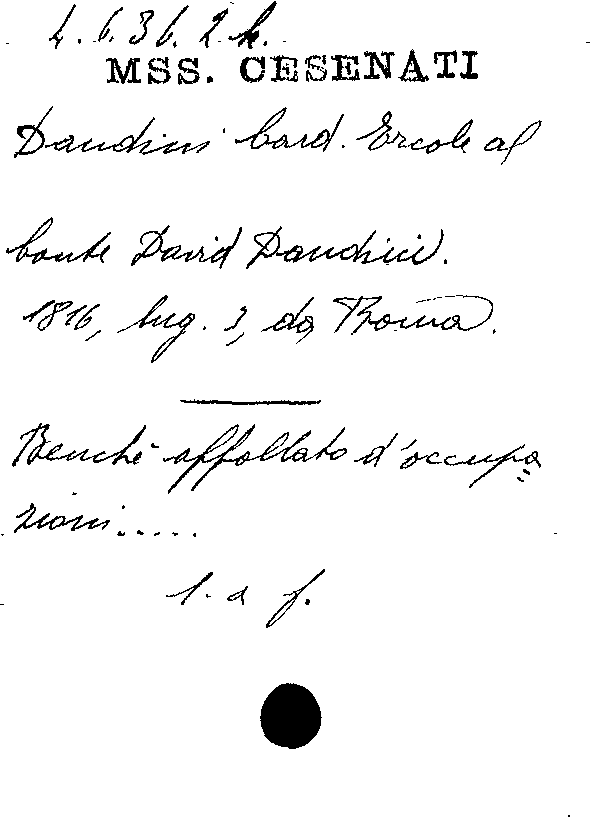 4.6.36.2 k.
MSS. CESENATI
Dandini Card. Ercole al
Conte David Dandini.
1816, lug. 3, da Roma.
Benchè affollato d'occupa=
zioni.....
l. a f.